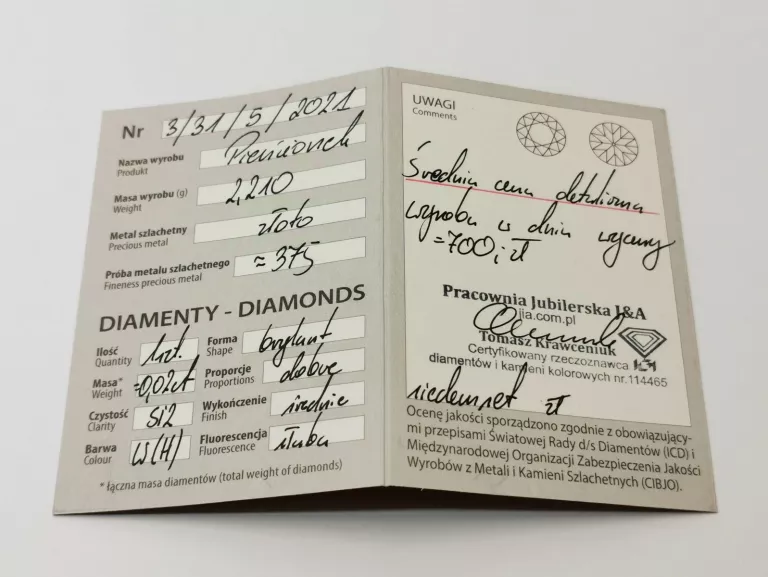 Nr 3/31/5/2021
Nazwa wyrobu Pierścionek
Produkt
Masa wyrobu (g) 2,210
Weight
Metal szlachetny złoto
Precious metal
Próba metalu szlachetnego ≈ 375
Fineness precious metal
DIAMENTY - DIAMONDS
Ilość 1szt.
Quantity
Masa* ≈0,02ct
Weight
Czystość Si2
Clarity
Barwa W(H)
Colour
Forma brylant
Shape
Proporcje dobre
Proportions
Wykończenie średnie
Finish
Fluorescencja słaba
Fluorescence
* łączna masa diamentów (total weight of diamonds)
UWAGI
Comments
Średnia cena detaliczna
wyrobu w dniu wyceny
=700,- zł
Pracownia Jubilerska J&A
jja.com.pl
Tomasz Krawceniuk
Certyfikowany rzeczoznawca
diamentów i kamieni kolorowych nr.114465
siedemset zł
Ocenę jakości sporządzono zgodnie z obowiązujący-
mi przepisami Światowej Rady d/s Diamentów (ICD) i
Międzynarodowej Organizacji Zabezpieczenia Jakości
Wyrobów z Metali i Kamieni Szlachetnych (CIBJO).